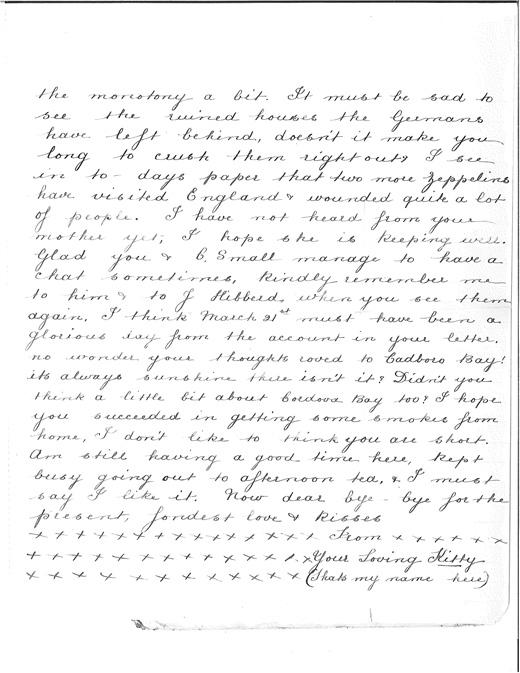 the monotony a bit. It must be sad to
see the ruined houses the Germans
have left behind, doesn't it make you
long to crush them right out? I see
in to-days paper that two more Zeppelins
have visited England & wounded quite a lot
of people. I have not heard from your
mother yet, I hope she is keeping well.
Glad you & C. Small manage to have a
chat sometimes, kindly remember me
to him & to J Hibberd, when you see them
again. I think March 21st must have been a
glorious day from the account in your letter.
no wonder your thoughts roved to Cadboro Bay!
its always sunshine there isn't it? Didn't you
think a little bit about Cordova Bay too? I hope
you succeeded in getting some smokes from
home, I don't like to think you are short.
Am still having a good time here, kept
busy going out to afternoon tea, & I must
say I like it. Now dear bye-bye for the
present, fondest love & kisses
x x x x x x x x x x x x x x From x x x x x x
x x x x x x x x x x x x x x x Your Loving Kitty
x x x x x x x x x x x x x x (Thats my name here)